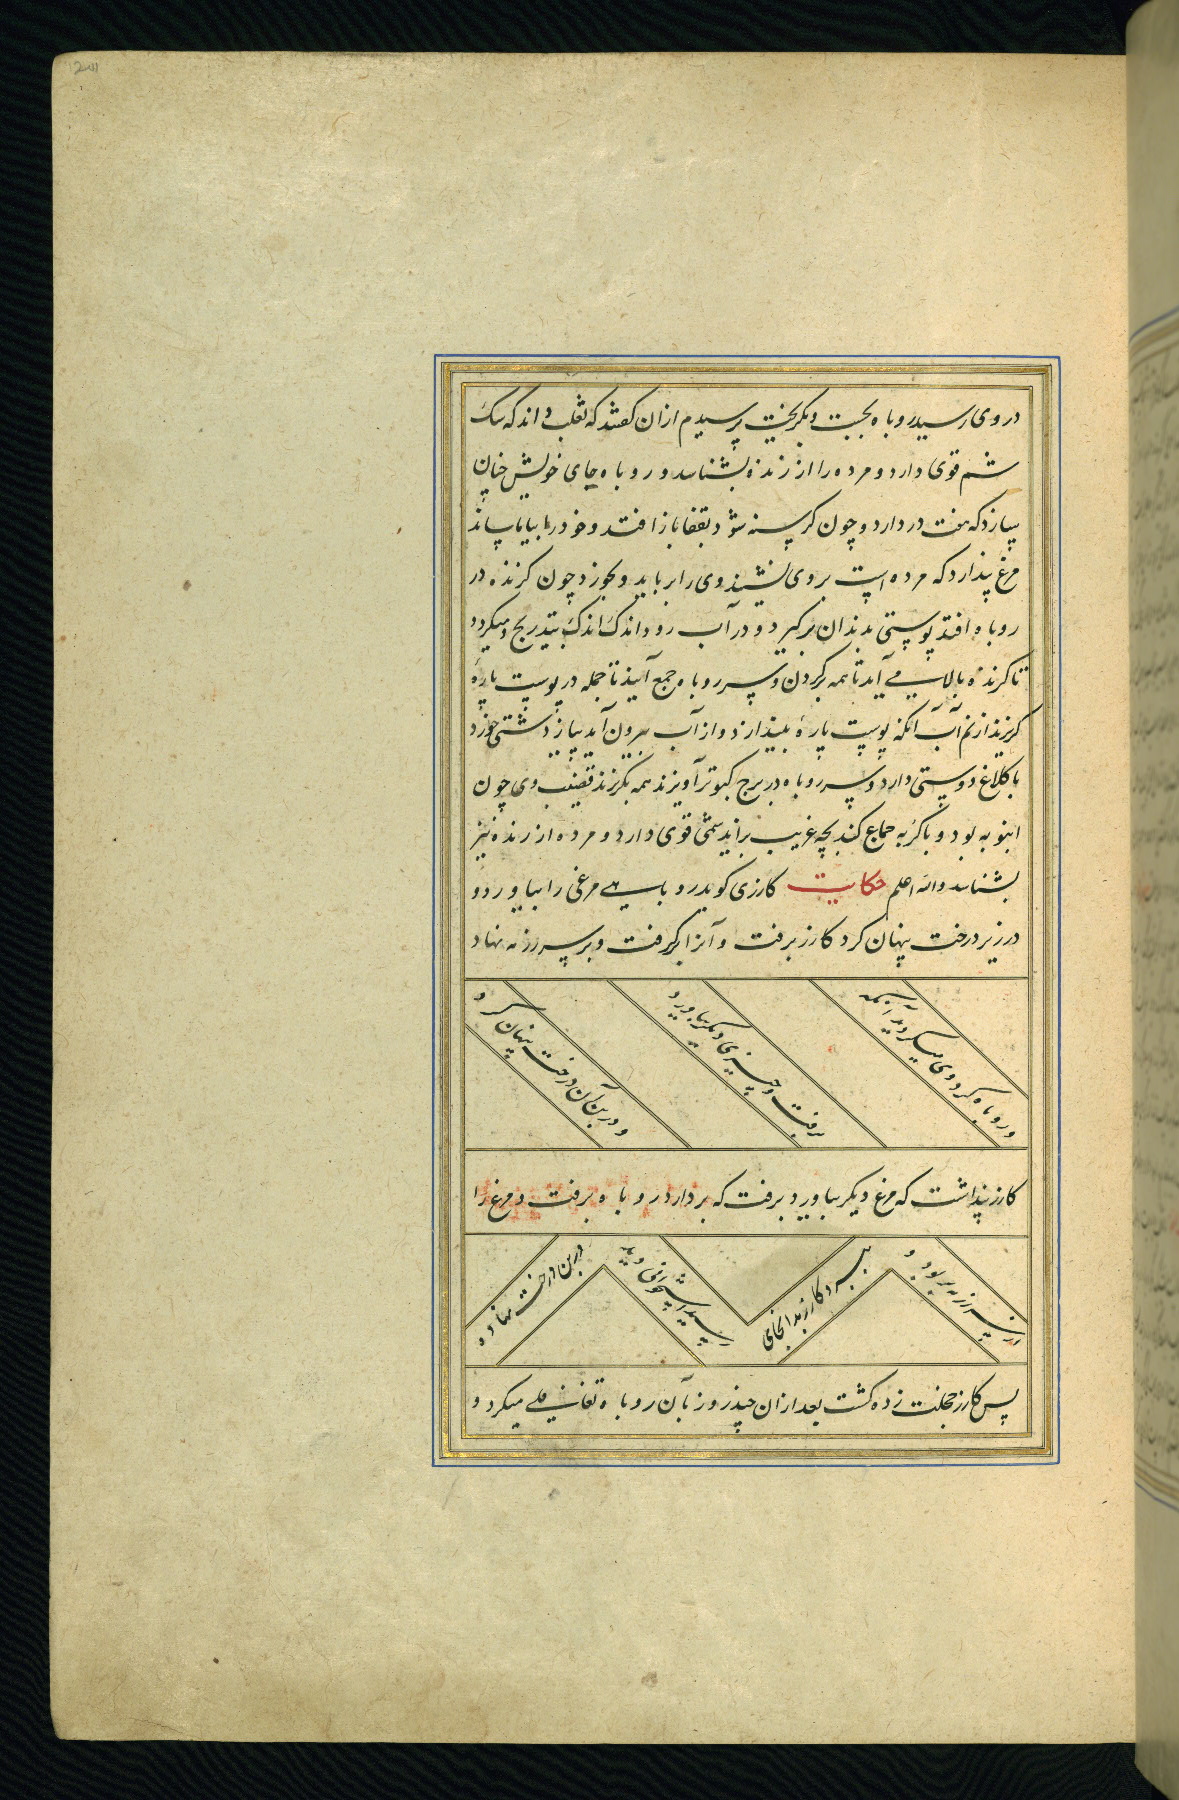 در وی رسید روباه بجست و بگریخت پرسیدم ازان گفتند که ثعلب داند که سگ
شم قوی دارد و مرده را از زنده بشناسد و روباه جای خویش چنان
سازد که هفت در دارد و چون گرسنه شود بقفا باز افتد و خود را
مرغ پندارد که مرده است بر وی نشیند وی را برباید و بخورد چون گزنده در
روباه افتد پوستی بدندان برگیرد و در آب رود اندک اندک بتدریج
تا گزنده بالا می آید تا همه بگردن و سر روباه جمع آیند تا جمله در پوست پاره
گریزند از نم آب آنگه پوست پاره بیندازد و از آب بیرون آید پیاز دشتی خورد
با کلاغ دوستی دارد و سر روباه در برج کبوتر آویزند همه بگریزند قضیب وی چون
انبوبه بود و با گربه جماع کند بچه غریب براید شمی قوی دارد و مرده از زنده نیز
بشناسد والله اعلم حکایت کارزی گوید روباهی مرغی را بیاورد و
در زیر درخت پنهان کرد کارز برفت و آنرا برگرفت و بر سر رزنه نهاد
و روباه گرد وی میگردید آنگه
برفت و چیزی دیگر بیاورد
و در بن آن درخت پنهان کرد
کارز پنداشت که مرغ دیگر بیاورد برفت که بردارد روباه برفت و مرغ را
از سر رزنه بربود و
ببرد کارز بدانجای
رسید استخوانی دید
در بن درخت نهاده
پس کارز خجلت زده گشت بعد ازان چند روز بآن روباه میکرد و